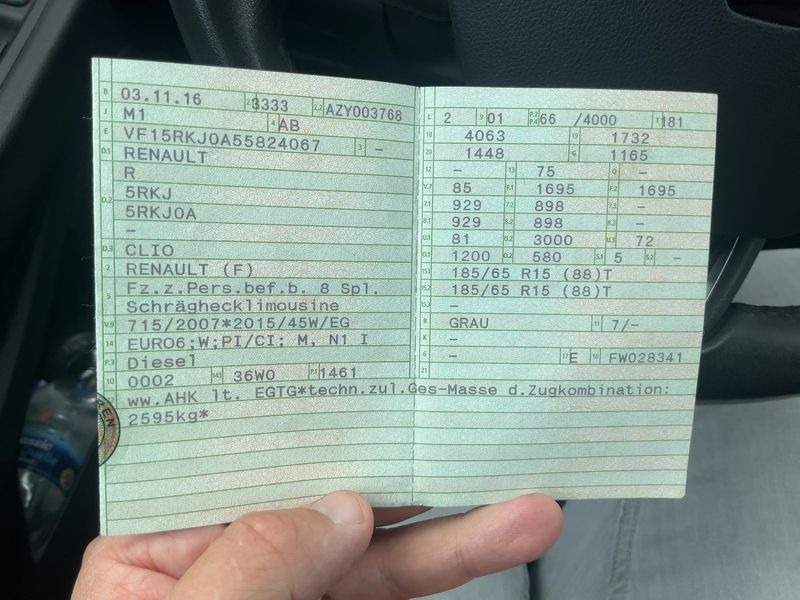 B 03.11.16 2.1 3333 2.2 AZY003768
J M1 4 AB
E VF15RKJ0A55824067 3 –
D.1 RENAULT
R
D.2 5RKJ
5RKJ0A
–
D.3 CLIO
2 RENAULT (F)
5 Fz.z.Pers.bef.b. 8 Spl.
Schräghecklimousine
V.9 715/2007*2015/45W/EG
14 EURO6;W;PI/CI; M, N1 I
P.3 Diesel
10 0002 14.1 36W0 P.1 1461
L 2 9 01 P.2 P.4 66 /4000 T 181
18 4063 19 1732
20 1448 G 1165
12 – 13 75 Q –
V.7 85 F.1 1695 F.2 1695
7.1 929 7.2 898 7.3 –
8.1 929 8.2 898 8.3 –
U.1 81 U.2 3000 U.3 72
O.1 1200 O.2 580 S.1 5 S.2 –
15.1 185/65 R15 (88)T
15.2 185/65 R15 (88)T
15.3 –
R GRAU 11 7/–
K –
6 – 17 E 16 FW028341
21
ww.AHK lt. EGTG*techn.zul.Ges-Masse d.Zugkombination:
2595kg*